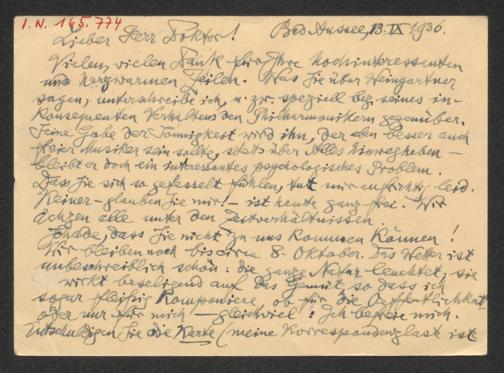 I. N. 165.774
Lieber Herr Doktor! Bad Aussee, 13. IX 1936.
Vielen, vielen Dank für Ihre hochinteressanten
und herzwarmen Zeilen. Was Sie über Weingartner
sagen, unterschreibe ich, u. zw. speziell bez. seines in-
konsequenten Verhaltens den Philharmonikern gegenüber.
Seine Gabe der Innigkeit wird ihn, der ein besserer auch
freier Musiker sein sollte, stets über Alles hinwegheben –
bleibt er doch ein interessantes psychologisches Problem.
Dass Sie sich so gefesselt fühlen, tut mir aufrichtig leid.
Keiner – glauben Sie mir! – ist heute ganz frei. Wir
ächzen alle unter den Zeitverhältnissen.
Schade, dass Sie nicht zu uns kommen können!
Wir bleiben noch bis circa 8. Oktober. Das Wetter ist
unbeschreiblich schön: die ganze Natur leuchtet, sie
wirkt beseligend auf das Gemüt, so dass ich
sogar fleißig komponiere, ob für die Oeffentlichkeit
oder nur für mich – gleichviel: Ich befreie mich.
Entschuldigen Sie die Karte (meine Korrespondenzlast ist